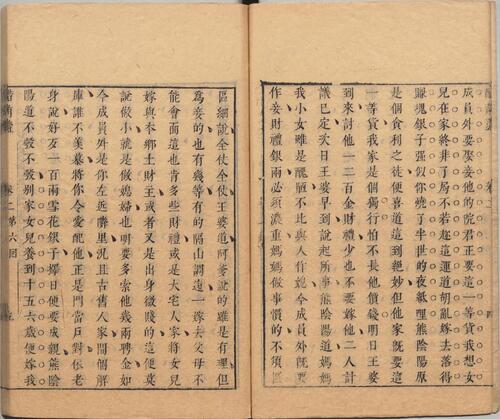 成員外要娶他的院君正要這一等貨我想女
兒在家終非了局不若趁這運道胡亂嫁去落得
賺塊銀子强似你熬了半世的夜紙哩熊陰陽原
是個貪利之徒便喜道這到絶妙但他家既要這
一等貨我家是個獨行怕不長他價錢明日王婆
到來討他一二百金財禮少也不要嫁他二人計
議已定次日王婆早到說起所事熊陰陽道媽媽
我小女雖是醜陋不比與人作媳今成員外既要
作妾財禮銀兩必須濃重媽媽做事慣的不須區
區細說全仗全仗王婆道阿爹說的雖是有理但
為妾的也有幾等有的隔山調遠一嫁去父母不
能會面這也肯多些財禮或是大宅人家將女兒
嫁與本鄉土財主或者又是出身微賤的這便莫
說做小就是做媳婦也明要多索他幾兩聘金如
今成員外是你左近隣里況且古舊人家閤個解
庫誰不羡慕將你令愛配他正是門當戶對依老
身說好歹一百兩雪花銀子擇日便要成親熊陰
陽道不勾不勾别家女兒養到十五六歲便嫁我
卷二第六回